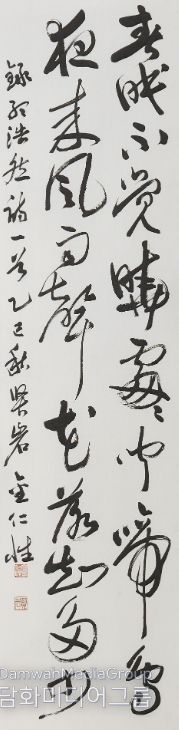 春眠不覺曉處〻聞啼鳥
夜来風雨聲花落知多少
錄孟浩然詩一首乙巳秋岩金仁性
DamwahMediaGroup
담화미디어그룹